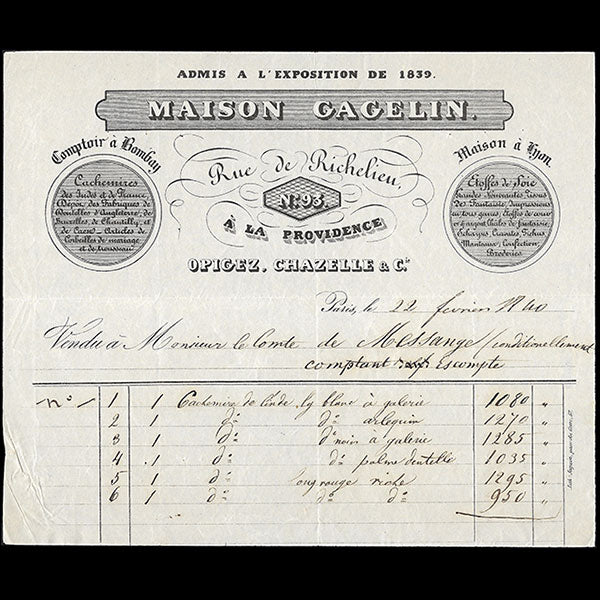 ADMIS A L'EXPOSITION DE 1839.
MAISON GAGELIN.
Comptoir à Bombay
Cachemires
des Indes et de France,
Dépôt des Fabriques de
Dentelles d'Angleterre, de
Bruxelles, de Chantilly, et
de Caen. Articles de
Corbeilles de mariage
et de trousseau
Rue de Richelieu,
N° 93.
À LA PROVIDENCE
OPIGEZ, CHAZELLE & Cie
Maison à Lyon.
Etoffes de Soie
Grandes Nouveautés, Tissus
de Fantaisie, Impressions
en tous genres, Etoffes de cour
or et argent, Châles de fantaisie
Echarpes, Cravates, Fichus,
Manteaux, Confection,
Broderies
Paris, le 22 février 1840
Vendu à Monsieur le Comte de Messange / conditionellement
comptant escompte
Nos 1 1 Cachemire de l'inde lg blanc à galerie 1080 "
2 1 do do arlequin 1270 "
3 1 do do noir à galerie 1285 "
4 1 do do palme dentelle 1035 "
5 1 do long rouge riche 1295 "
6 1 do do do 950 "